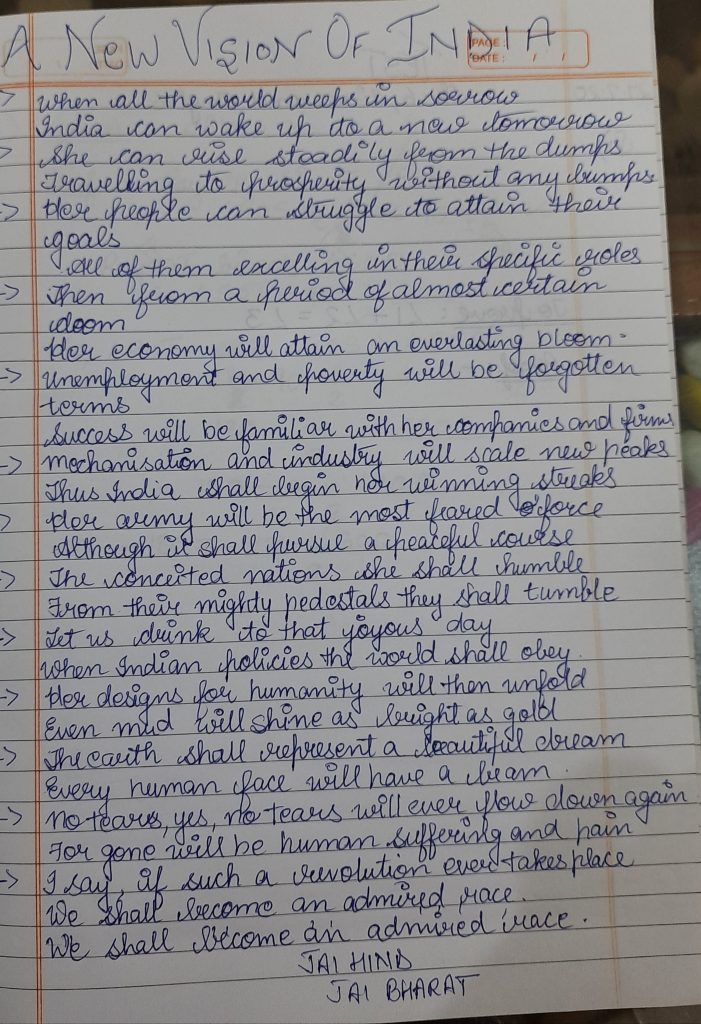 A NEW VISION OF INDIA
PAGE:
DATE: / /
-> When all the world weeps in sorrow
India can wake up to a new tomorrow
-> She can rise steadily from the dumps
Travelling to prosperity without any bumps
-> Her people can struggle to attain their
goals
All of them excelling in their specific roles
-> Then from a period of almost certain
doom
Her economy will attain an everlasting bloom.
-> Unemployment and poverty will be forgotten
terms
Success will be familiar with her companies and firms
-> Mechanisation and industry will scale new peaks
Thus India shall begin her winning streaks
-> Her army will be the most feared force
Although it shall pursue a peaceful course
-> The conceited nations she shall humble
From their mighty pedestals they shall tumble
-> Let us drink to that joyous day
When Indian policies the world shall obey.
-> Her designs for humanity will then unfold
Even mud will shine as bright as gold
-> The earth shall represent a beautiful dream
Every human face will have a beam.
-> No tears, yes, no tears will ever flow down again
For gone will be human suffering and pain
-> I say, if such a revolution ever takes place
We shall become an admired race.
We shall become an admired race.
JAI HIND
JAI BHARAT